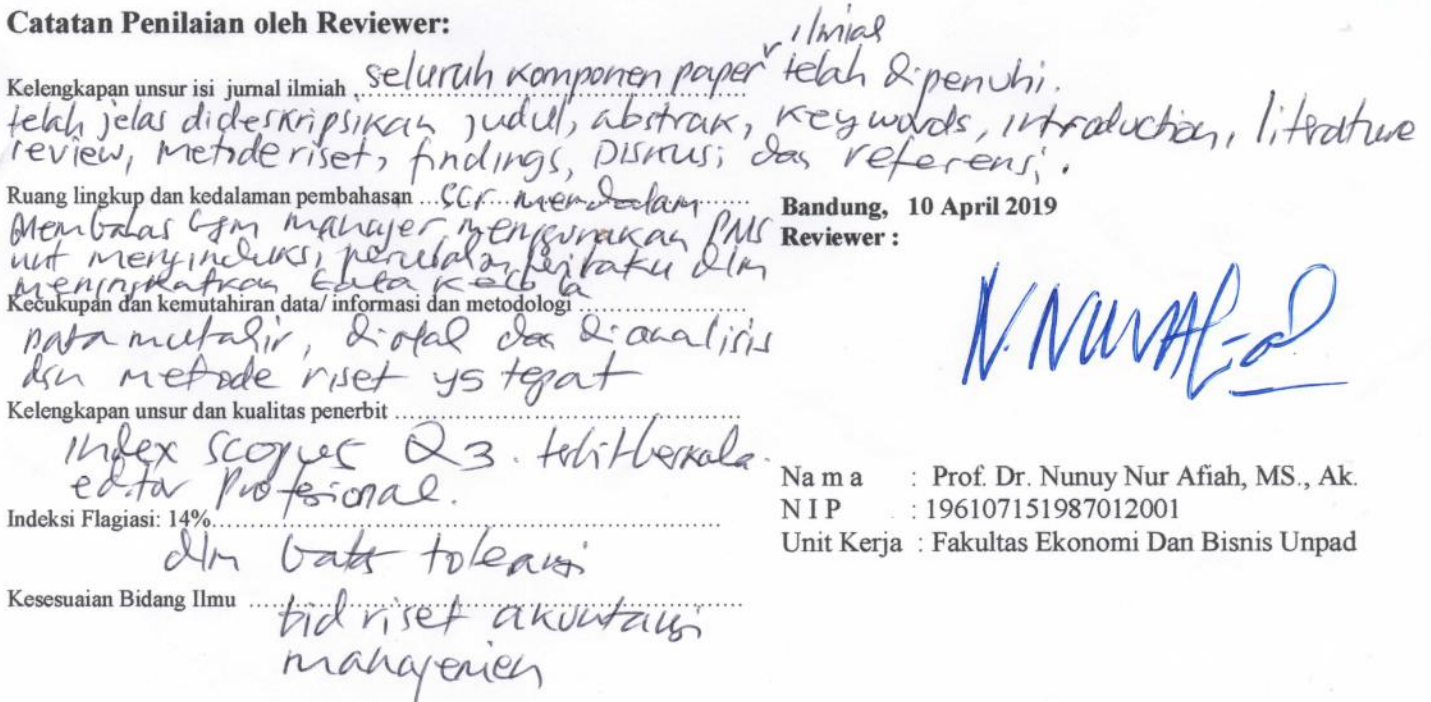 Catatan Penilaian oleh Reviewer:
ilmiah
Kelengkapan unsur isi jurnal ilmiah seluruh komponen paper telah dipenuhi.
telah jelas dideskripsikan judul, abstrak, keywords, introduction, literature
review, metode riset, findings, Diskusi dan referensi.
Ruang lingkup dan kedalaman pembahasan ... scr mendalam
Membahas bgm manajer menggunakan PMS
unt menginduksi perubahan perilaku dlm
meningkatkan tata kelola
Kecukupan dan kemutahiran data/ informasi dan metodologi
Data mutahir, diolah dan dianalisis
dgn metode riset yg tepat
Kelengkapan unsur dan kualitas penerbit
index scopus Q3. terbit berkala.
editor profesional.
Indeksi Flagiasi: 14%
dlm batas toleransi
Kesesuaian Bidang Ilmu
bid riset akuntansi
manajemen
Bandung, 10 April 2019
Reviewer :
N a m a : Prof. Dr. Nunuy Nur Afiah, MS., Ak.
N I P : 196107151987012001
Unit Kerja : Fakultas Ekonomi Dan Bisnis Unpad